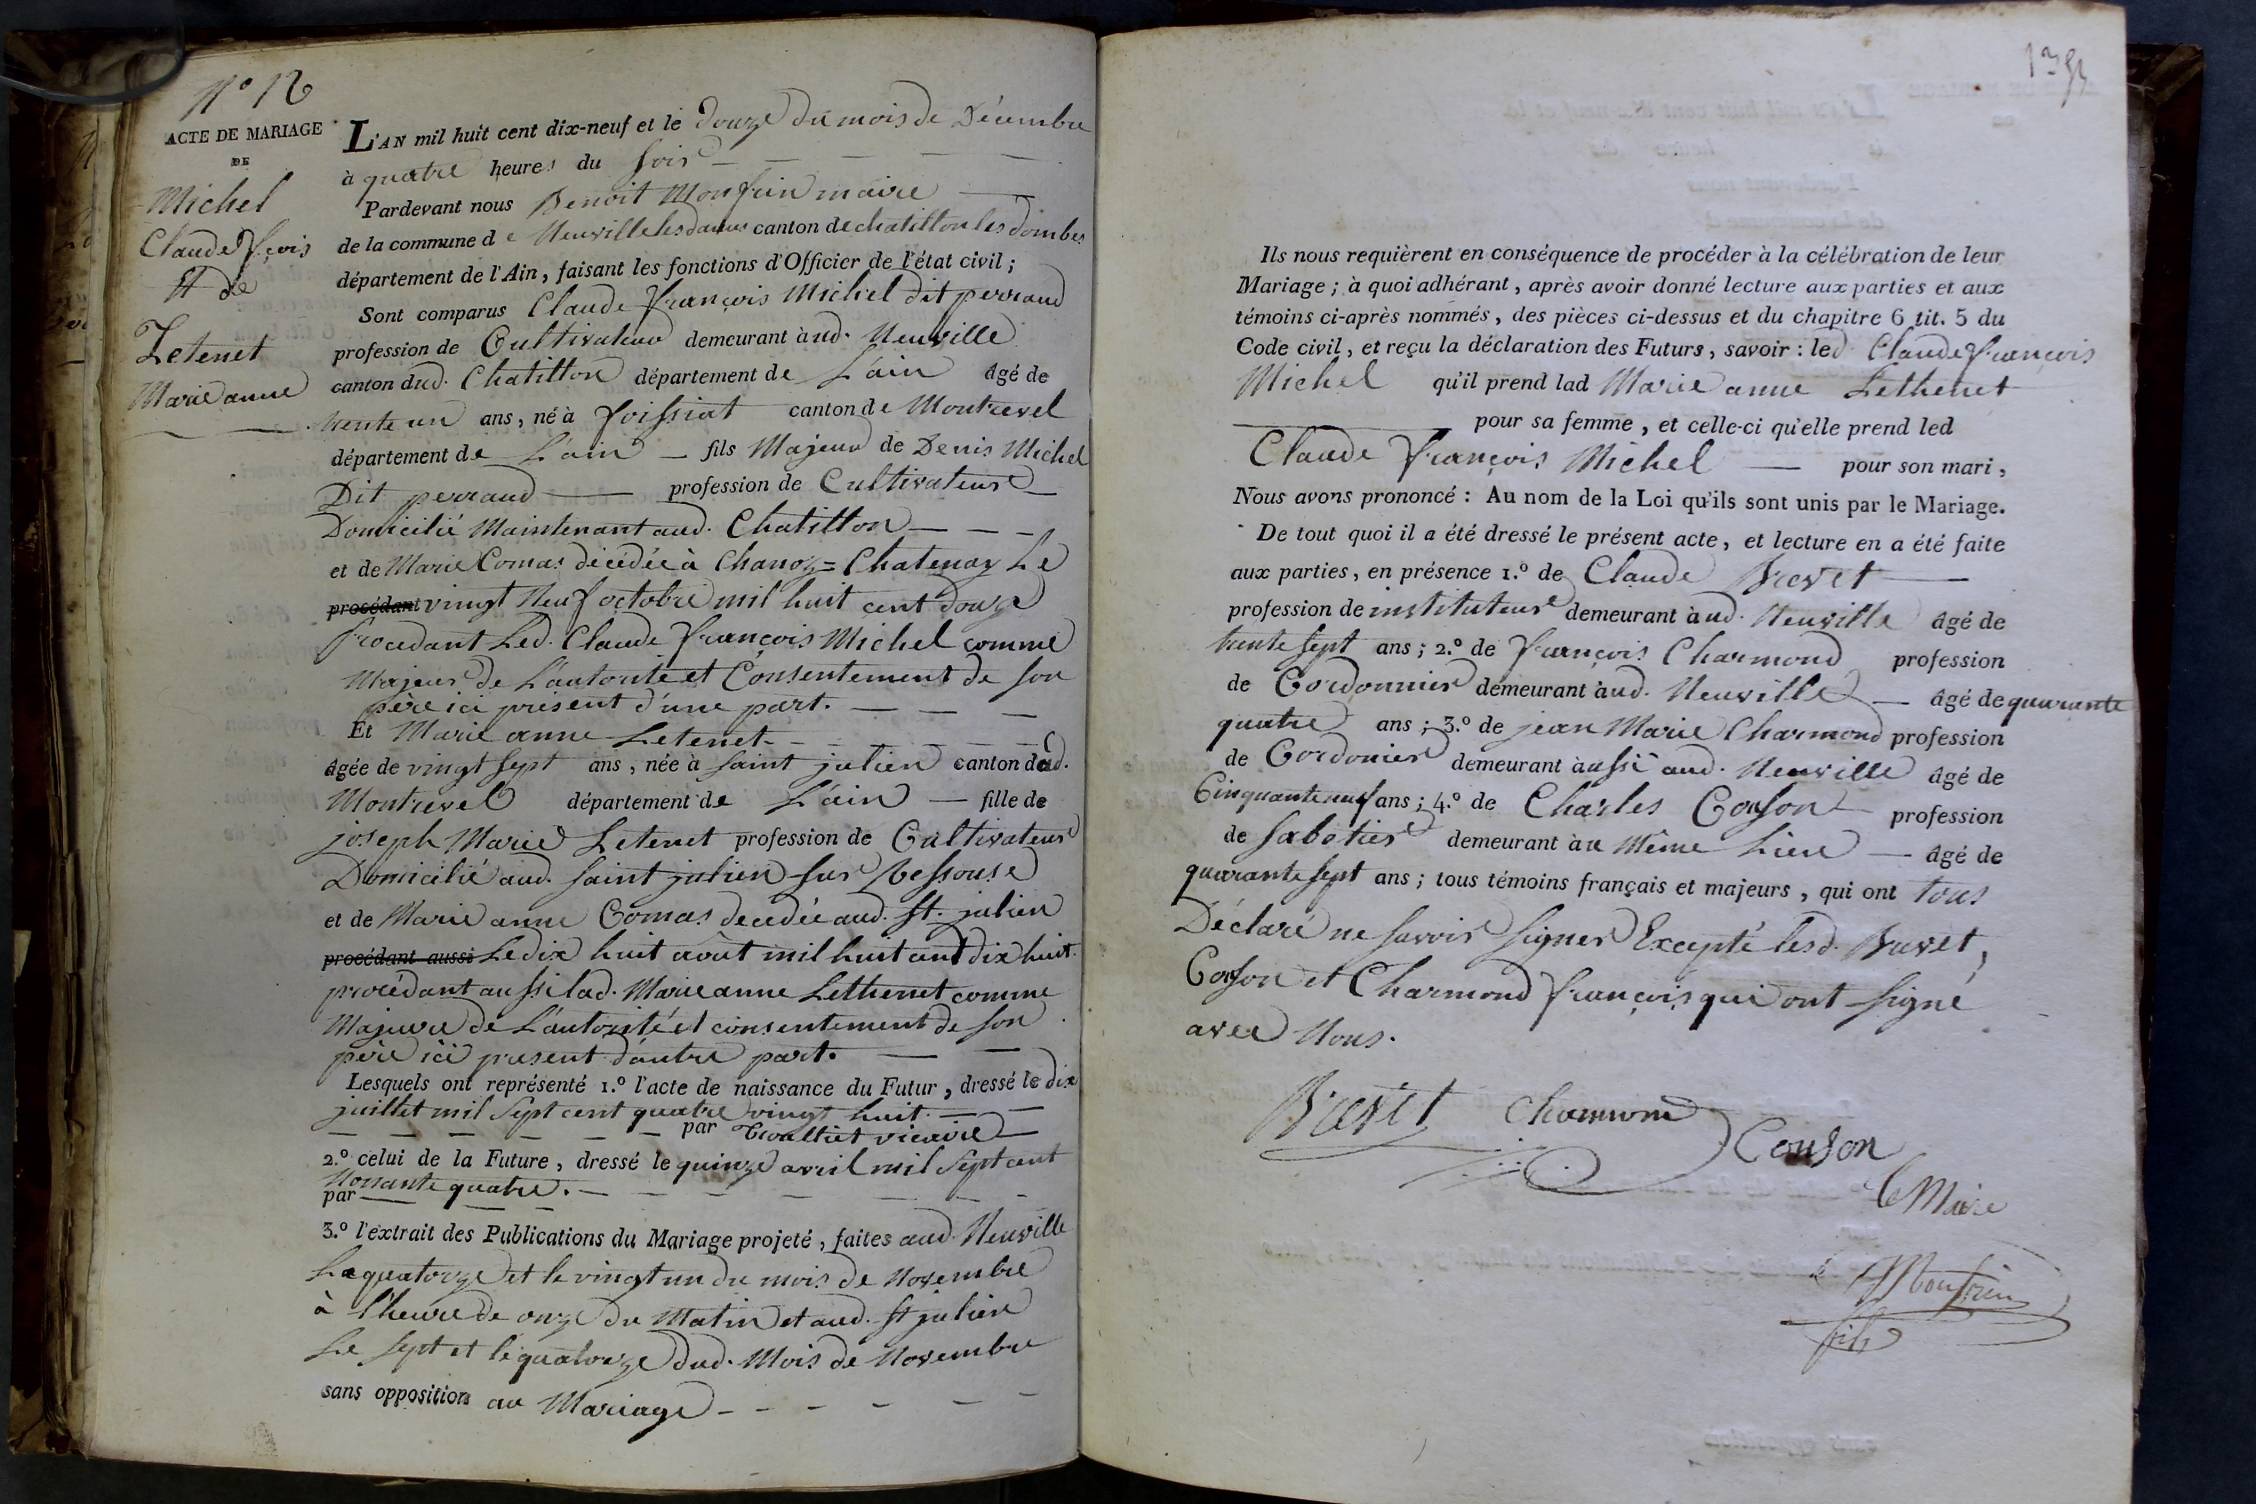 N° 12
ACTE DE MARIAGE
DE
Michel
Claude fçois
Et de
Letenet
Marie anne
L'AN mil huit cent dix-neuf et le douze du mois de Décembre
à quatre heures du soir
Pardevant nous Benoit Monfrin maire
de la commune de Neuville les dames canton de chatillon les dombes
département de l'Ain, faisant les fonctions d'Officier de l'état civil;
Sont comparus Claude françois Michel dit perraud
profession de Cultivateur demeurant aud. Neuville
canton dud. Chatillon département de L'ain âgé de
trente un ans, né à foissiat canton de Montrevel
département de L'ain fils Majeur de Denis Michel
Dit perraud profession de Cultivateur
Domicilié Maintenant aud. Chatillon
et de Marie Comas décédée à Chanoz=Chatenay Le
procédant vingt Neuf octobre mil huit cent douze
procedant Led. Claude françois Michel comme
Majeur de L'autorité et Consentement de son
père ici présent d'une part.
Et Marie anne Letenet
âgée de vingt sept ans, née à saint julien canton dud.
Montrevel département de L'ain fille de
joseph Marie Letenet profession de Cultivateur
Domicilié aud. saint julien sur Vessouse
et de Marie anne Comas decedée aud. St. julien
procédant aussi Le dix huit août mil huit cent dix huit.
procédant aussi lad. Marie anne Lethenet comme
Majeure de L'autorité et consentement de son
père ici present d'autre part.
Lesquels ont représenté 1.° l'acte de naissance du Futur, dressé le dix
juillet mil sept cent quatre vingt huit.
par vicaire
2.° celui de la Future, dressé le quinze avril mil sept cent
Nonante quatre.
par
3.° l'extrait des Publications du Mariage projeté, faites aud. Neuville
Le quatorze et le vingt un du mois de Novembre
à l'heure de onze du Matin et aud. St julien
Le sept et le quatorze dud. Mois de Novembre
sans opposition au Mariage
Ils nous requièrent en conséquence de procéder à la célébration de leur
Mariage; à quoi adhérant, après avoir donné lecture aux parties et aux
témoins ci-après nommés, des pièces ci-dessus et du chapitre 6 tit. 5 du
Code civil, et reçu la déclaration des Futurs, savoir: led Claude françois
Michel qu'il prend lad Marie anne Lethenet
pour sa femme, et celle-ci qu'elle prend led
Claude françois Michel pour son mari,
Nous avons prononcé: Au nom de la Loi qu'ils sont unis par le Mariage.
De tout quoi il a été dressé le présent acte, et lecture en a été faite
aux parties, en présence 1.° de Claude Brevet
profession de instituteur demeurant aud. Neuville âgé de
trente sept ans; 2.° de françois Charmond profession
de Cordonnier demeurant aud. Neuville âgé de quarante
quatre ans; 3.° de jean Marie Charmond profession
de Cordonier demeurant aussi aud. Neuville âgé de
Cinquante neuf ans; 4.° de Charles Conson profession
de sabotier demeurant au Même Lieu âgé de
quarante sept ans; tous témoins français et majeurs, qui ont tous
Déclaré ne savoir signer Excepté lesd. Brevet,
Conson et Charmond françois qui ont signé
avec Nous.
Brevet Charmond
Conson
Le Maire
Monfrin
fils